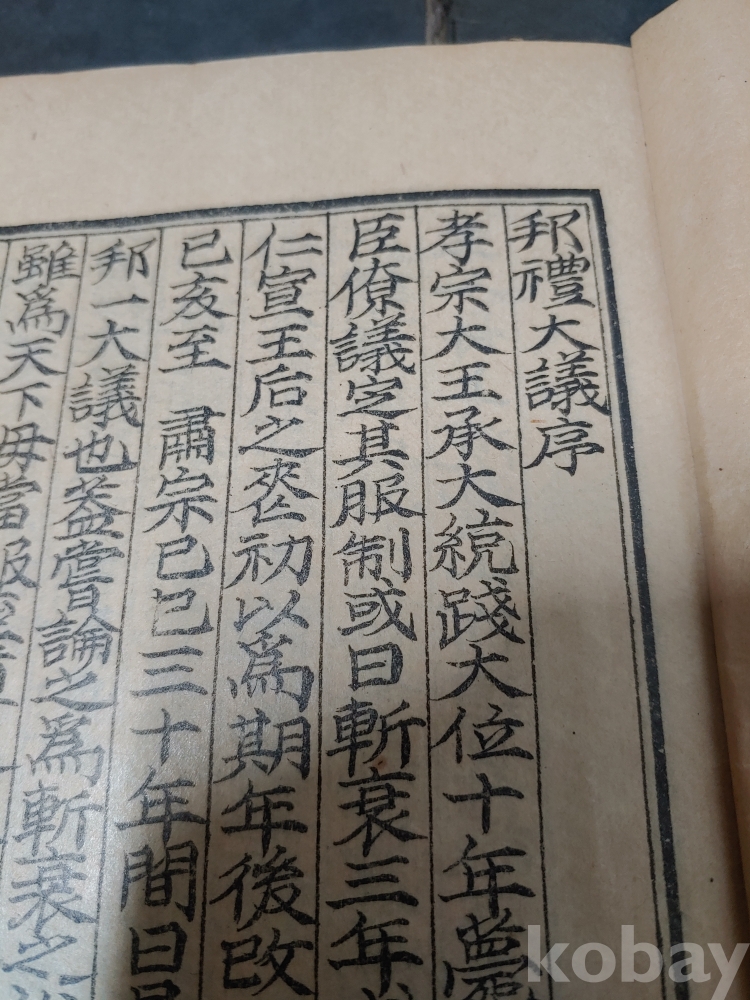 邦禮大議序
孝宗大王承大統踐大位十年薨
臣僚議定其服制或曰斬衰三年
仁宣王后之喪初以為期年後改
已亥至 肅宗已巳三十年間曰
邦一大議也蓋嘗論之為斬衰之
雖為天下毋當服
kobay